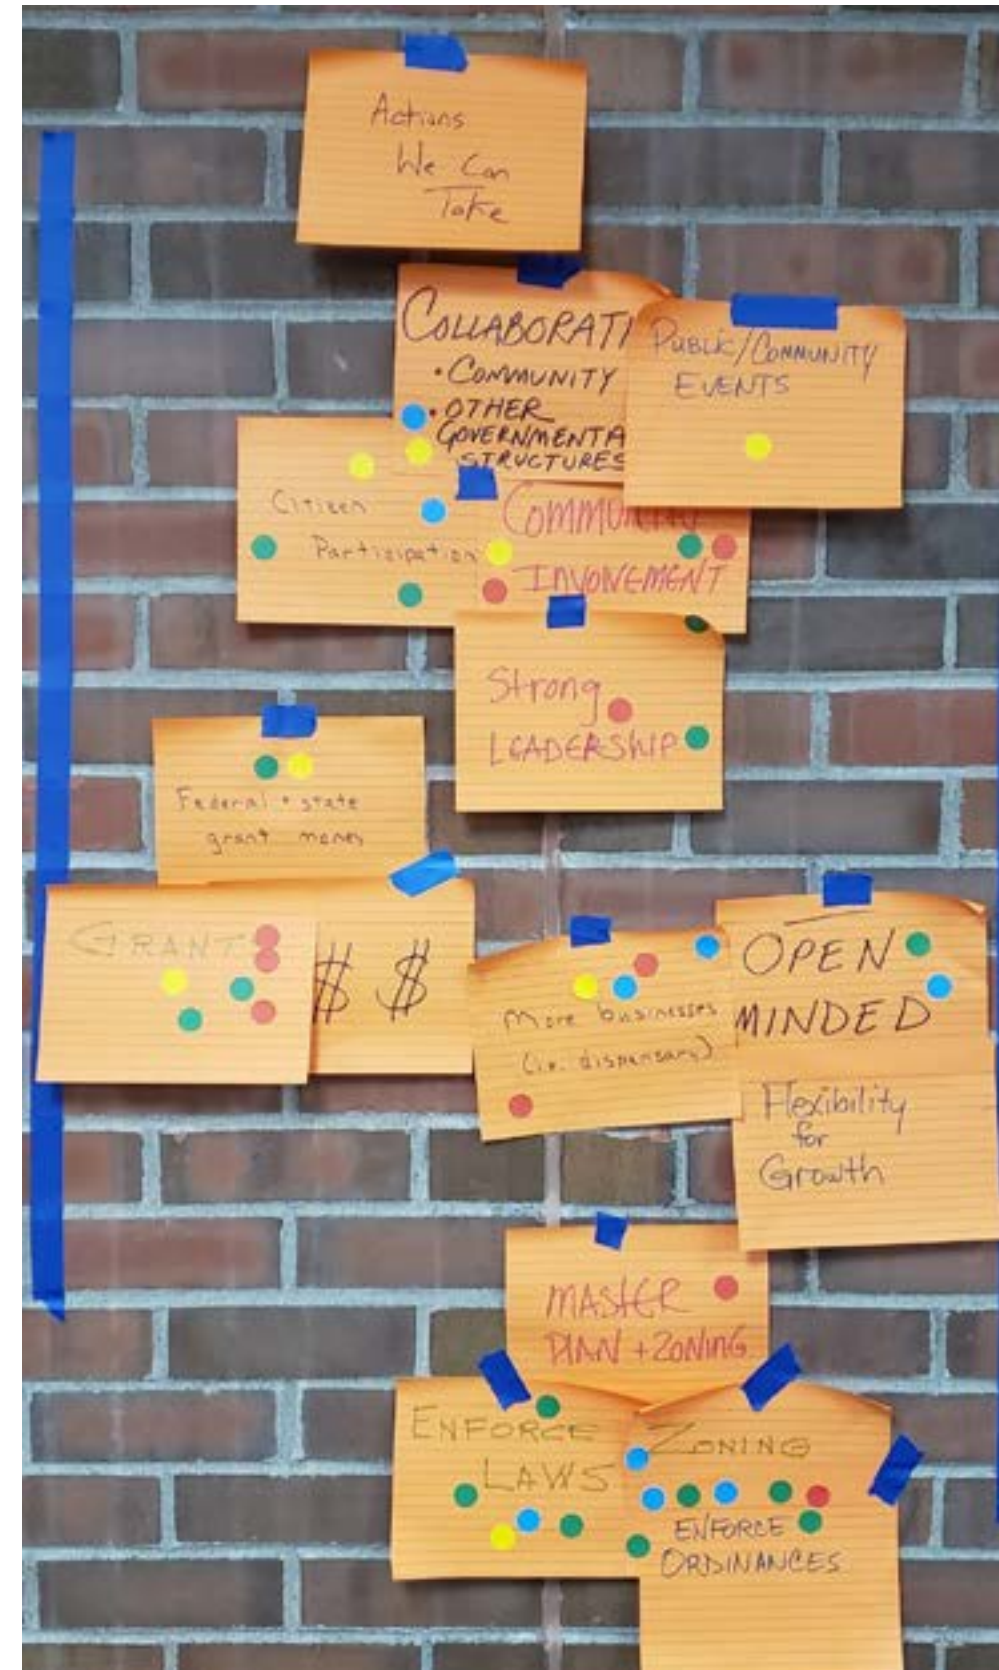 Actions
We Can
Take
COLLABORATI
• COMMUNITY
• OTHER
GOVERNMENTA
STRUCTURES
PUBLIC/COMMUNITY
EVENTS
Citizen
Participation
COMMUNITY
INVOLVEMENT
Strong
LEADERSHIP
Federal + state
grant money
GRANT
$ $
More businesses
(i.e. dispensary)
OPEN
MINDED
Flexibility
for
Growth
MASTER
PLAN + ZONING
ENFORCE
LAWS
ZONING
ENFORCE
ORDINANCES